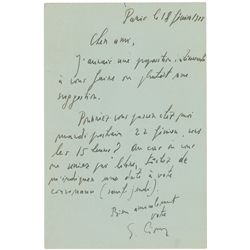 Paris le 18 février
Cher ami,
J'aurais une proposition
à vous faire ou plutôt une
suggestion.
Pourriez-vous passer chez moi
mardi prochain 22 février, vers
les 15 heures? Au cas où vous
ne seriez pas libre,
m'indiquer une date à votre
convenance (sauf jeudi).
Bien amicalement
votre